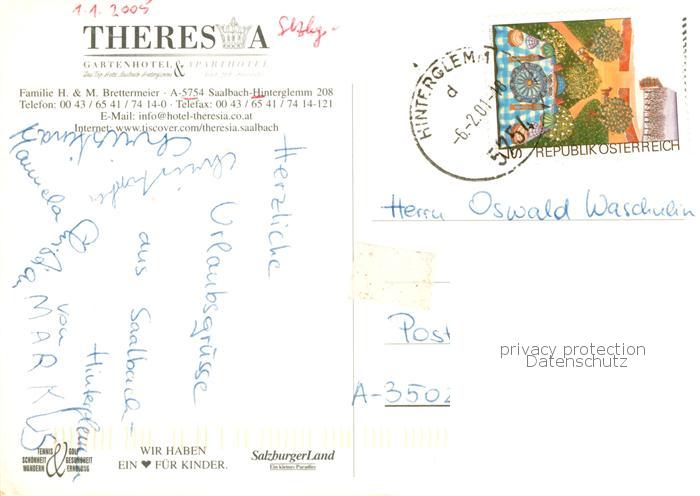 1.1.2005
Slzbg.
THERESIA
GARTENHOTEL & APARTHOTEL
Familie H. & M. Brettermeier · A-5754 Saalbach-Hinterglemm 208
Telefon: 00 43 / 65 41 / 74 14-0 · Telefax: 00 43 / 65 41 / 74 14-121
E-Mail: info@hotel-theresia.co.at
Internet: www.tiscover.com/theresia.saalbach
HINTERGLEMM 1
d
-6.-2.01-18
5754
REPUBLIK ÖSTERREICH
Herzliche
Urlaubsgrüsse
aus Saalbach-
Hinterglemm
von
MARKUS
Manuela
Christina
Herrn Oswald Waschulin
Post
A-3502
privacy protection
Datenschutz
TENNIS & GOLF
SCHÖNHEIT GESUNDHEIT
WANDERN ERHOLUNG
WIR HABEN
EIN ♥ FÜR KINDER.
SalzburgerLand
Ein kleines Paradies